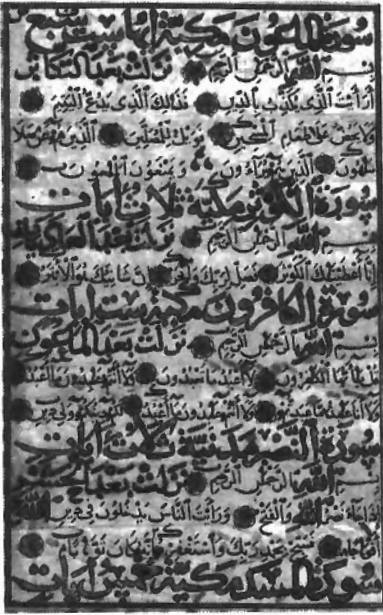 سورة الماعون مكية آياتها سبع
بسم الله الرحمن الرحيم نزلت بعد التكاثر
أرأيت الذي يكذب بالدين فذالك الذي يدع اليتيم
ولا يحض على طعام المسكين فويل للمصلين الذين هم عن صلا
تهم ساهون الذين هم يراءون ويمنعون الماعون
سورة الكوثر مكية ثلاث آيات
بسم الله الرحمن الرحيم نزلت بعد العاديات
إنا أعطيناك الكوثر فصل لربك وانحر إن شانئك هو الأبتر
سورة الكافرون مكية ست آيات
بسم الله الرحمن الرحيم نزلت بعد الماعون
قل يا أيها الكافرون لا أعبد ما تعبدون ولا أنتم عابدون ما أعبد
ولا أنا عابد ما عبدتم ولا أنتم عابدون ما أعبد لكم دينكم ولي دين
سورة النصر مدنية ثلاث آيات
بسم الله الرحمن الرحيم نزلت بعد الحشر
إذا جاء نصر الله والفتح ورأيت الناس يدخلون في دين الله
أفواجا فسبح بحمد ربك واستغفره إنه كان توابا
سورة المسد مكية خمس آيات